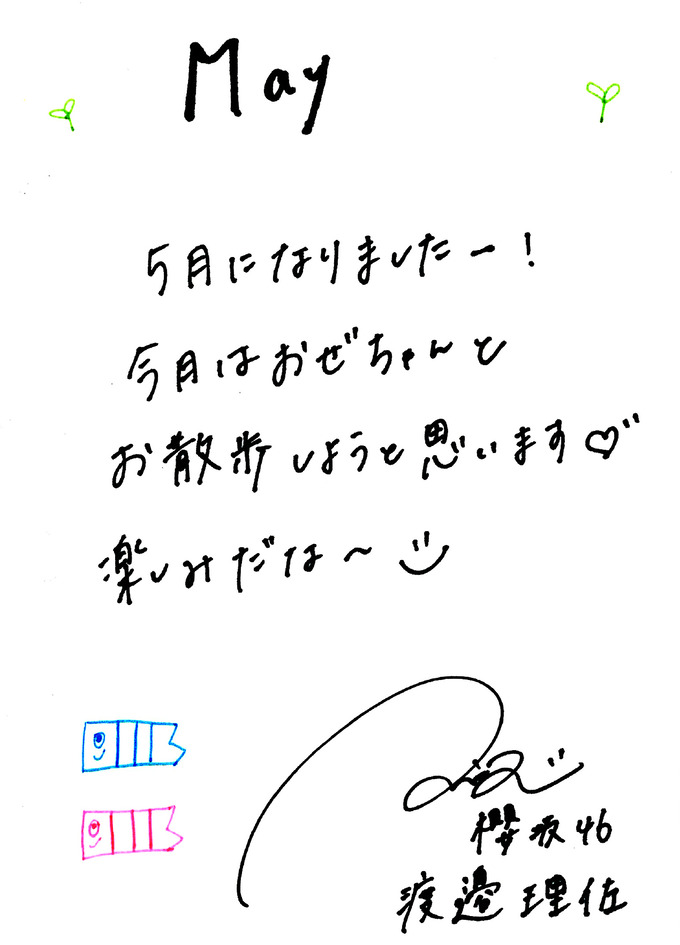 May
5月になりましたー!
今月はおぜちゃんと
お散歩しようと思います♡
楽しみだな〜
櫻坂46
渡邉理佐